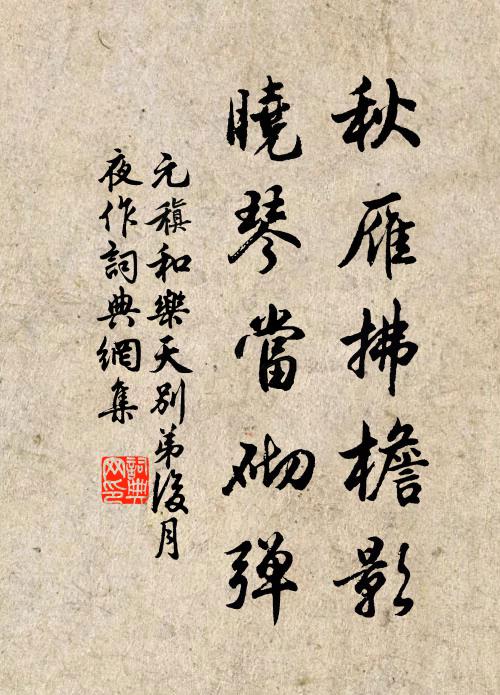 秋雁拂檐影
曉琴當砌弹
元稹和樂天別弟後月
夜作詞典網集
詞典
网印